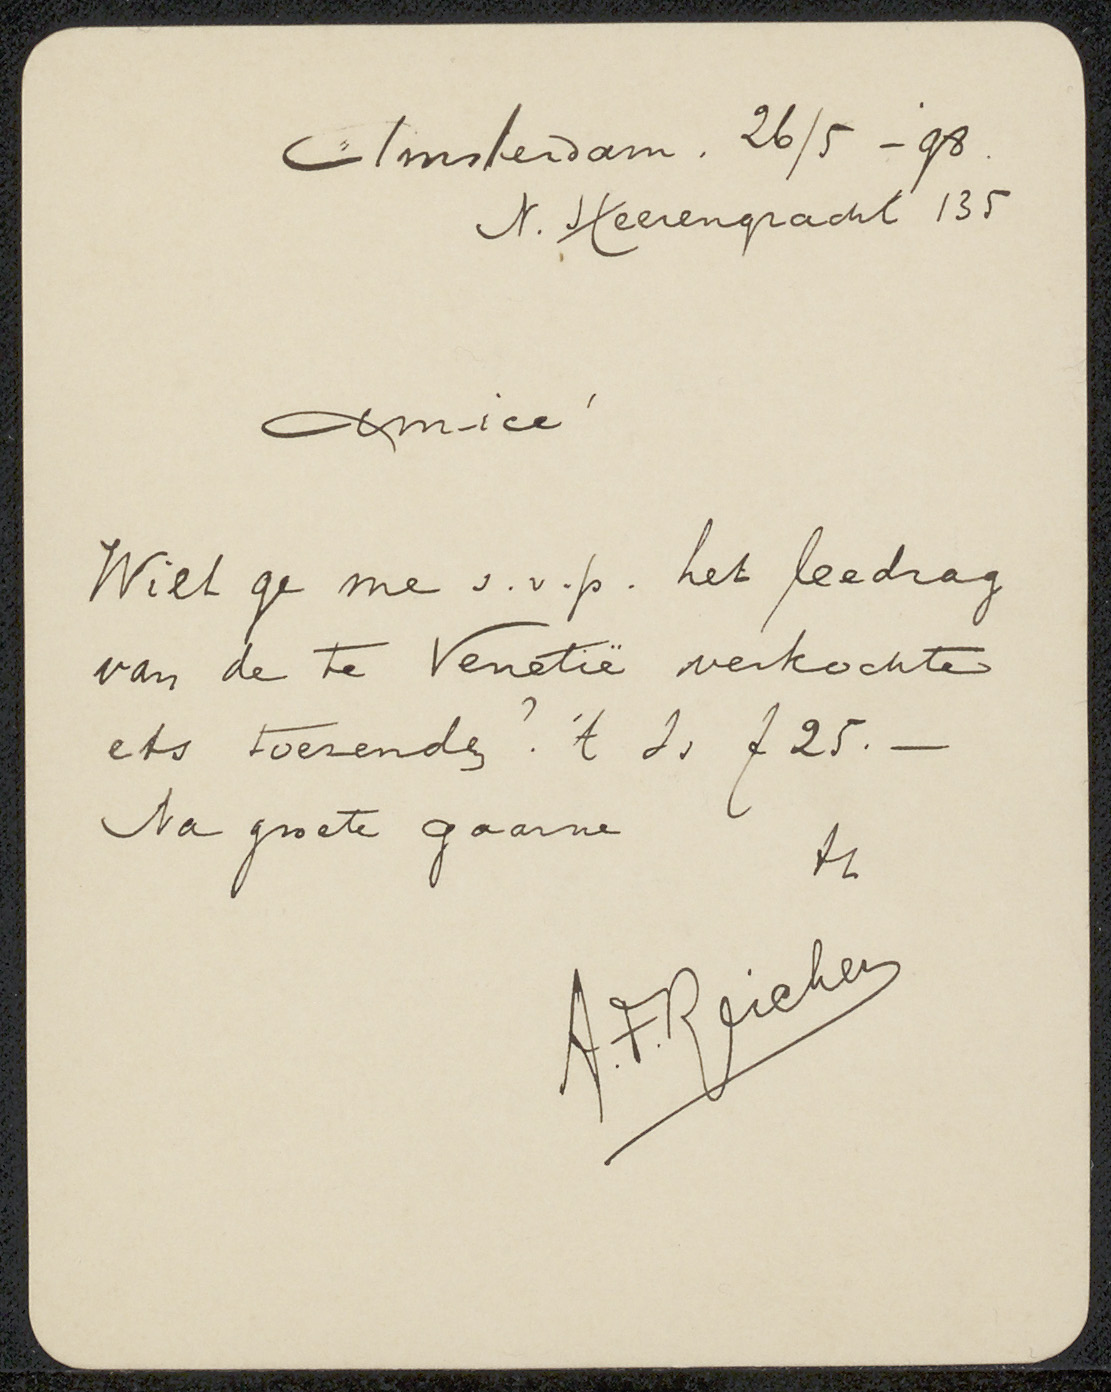 Amsterdam. 26/5 - '98.
N. Heerengracht 135
Amice'
Wilt ge me s.v.p. het bedrag
van de te Venetië verkochte
ets toezenden? 't Is f 25.—
Na groete gaarne
tt
A.F. Reicher